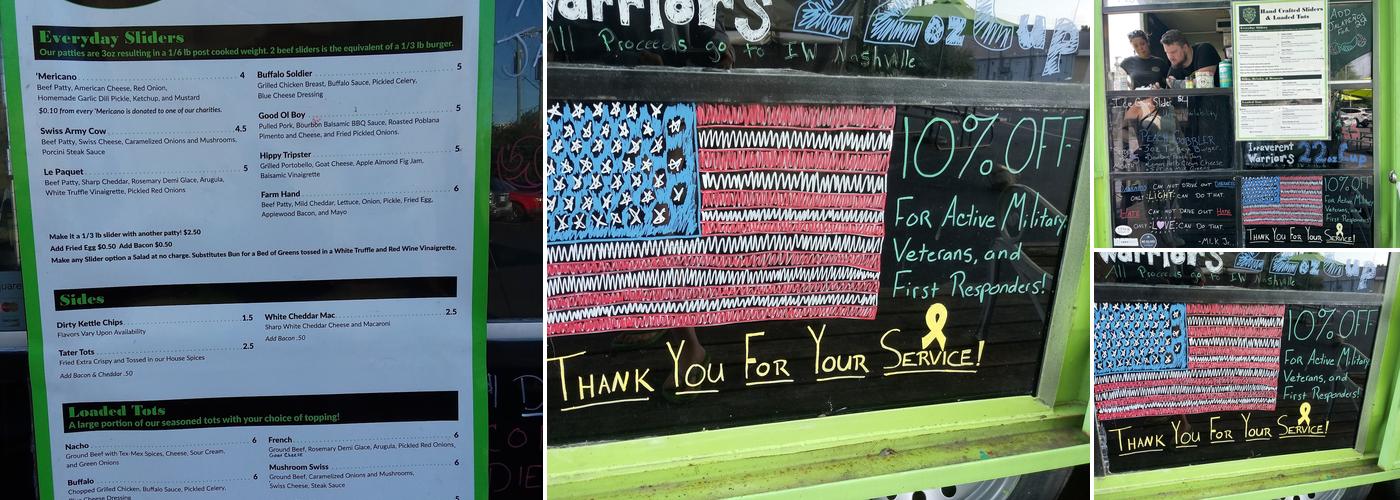 Everyday Sliders
Our patties are 3oz resulting in a 1/6 lb post cooked weight. 2 beef sliders is the equivalent of a 1/3 lb burger.
'Mericano 4
Beef Patty, American Cheese, Red Onion,
Homemade Garlic Dill Pickle, Ketchup, and Mustard
$0.10 from every 'Mericano is donated to one of our charities.
Swiss Army Cow 4.5
Beef Patty, Swiss Cheese, Caramelized Onions and Mushrooms,
Porcini Steak Sauce
Le Paquet 5
Beef Patty, Sharp Cheddar, Rosemary Demi Glace, Arugula,
White Truffle Vinaigrette, Pickled Red Onions
Buffalo Soldier 5
Grilled Chicken Breast, Buffalo Sauce, Pickled Celery,
Blue Cheese Dressing
Good Ol Boy 5
Pulled Pork, Bourbon Balsamic BBQ Sauce, Roasted Poblana
Pimento and Cheese, and Fried Pickled Onions.
Hippy Tripster 5
Grilled Portobello, Goat Cheese, Apple Almond Fig Jam,
Balsamic Vinaigrette
Farm Hand 6
Beef Patty, Mild Cheddar, Lettuce, Onion, Pickle, Fried Egg,
Applewood Bacon, and Mayo
Make it a 1/3 lb slider with another patty! $2.50
Add Fried Egg $0.50 Add Bacon $0.50
Make any Slider option a Salad at no charge. Substitutes Bun for a Bed of Greens tossed in a White Truffle and Red Wine Vinaigrette.
Sides
Dirty Kettle Chips 1.5
Flavors Vary Upon Availability
Tater Tots 2.5
Fried Extra Crispy and Tossed in our House Spices
Add Bacon & Cheddar .50
White Cheddar Mac 2.5
Sharp White Cheddar Cheese and Macaroni
Add Bacon .50
Loaded Tots
A large portion of our seasoned tots with your choice of topping!
Nacho 6
Ground Beef with Tex-Mex Spices, Cheese, Sour Cream,
and Green Onions
Buffalo 6
Chopped Grilled Chicken, Buffalo Sauce, Pickled Celery,
Blue Cheese Dressing
French 6
Ground Beef, Rosemary Demi Glace, Arugula, Pickled Red Onions,
Goat Cheese
Mushroom Swiss 6
Ground Beef, Caramelized Onions and Mushrooms,
Swiss Cheese, Steak Sauce
5
Warriors 22oz Cup
All Proceeds go to IW Nashville
10% OFF
For Active Military,
Veterans, and
First Responders!
THANK YOU FOR YOUR SERVICE!
Hand Crafted Sliders
& Loaded Tots
ADD
JALAPENOS
FOR
Irreverent
Warriors 22oz Cup
CAN NOT DRIVE OUT DARKNESS
ONLY LIGHT CAN DO THAT.
HATE CAN NOT DRIVE OUT HATE
ONLY LOVE CAN DO THAT
-MLK Jr.
10% OFF
For Active Military
Veterans, and
First Responders!
THANK YOU FOR YOUR SERVICE!
Warriors 22oz Cup
All Proceeds go to IW Nashville
10% OFF
For Active Military,
Veterans, and
First Responders!
THANK YOU FOR YOUR SERVICE!